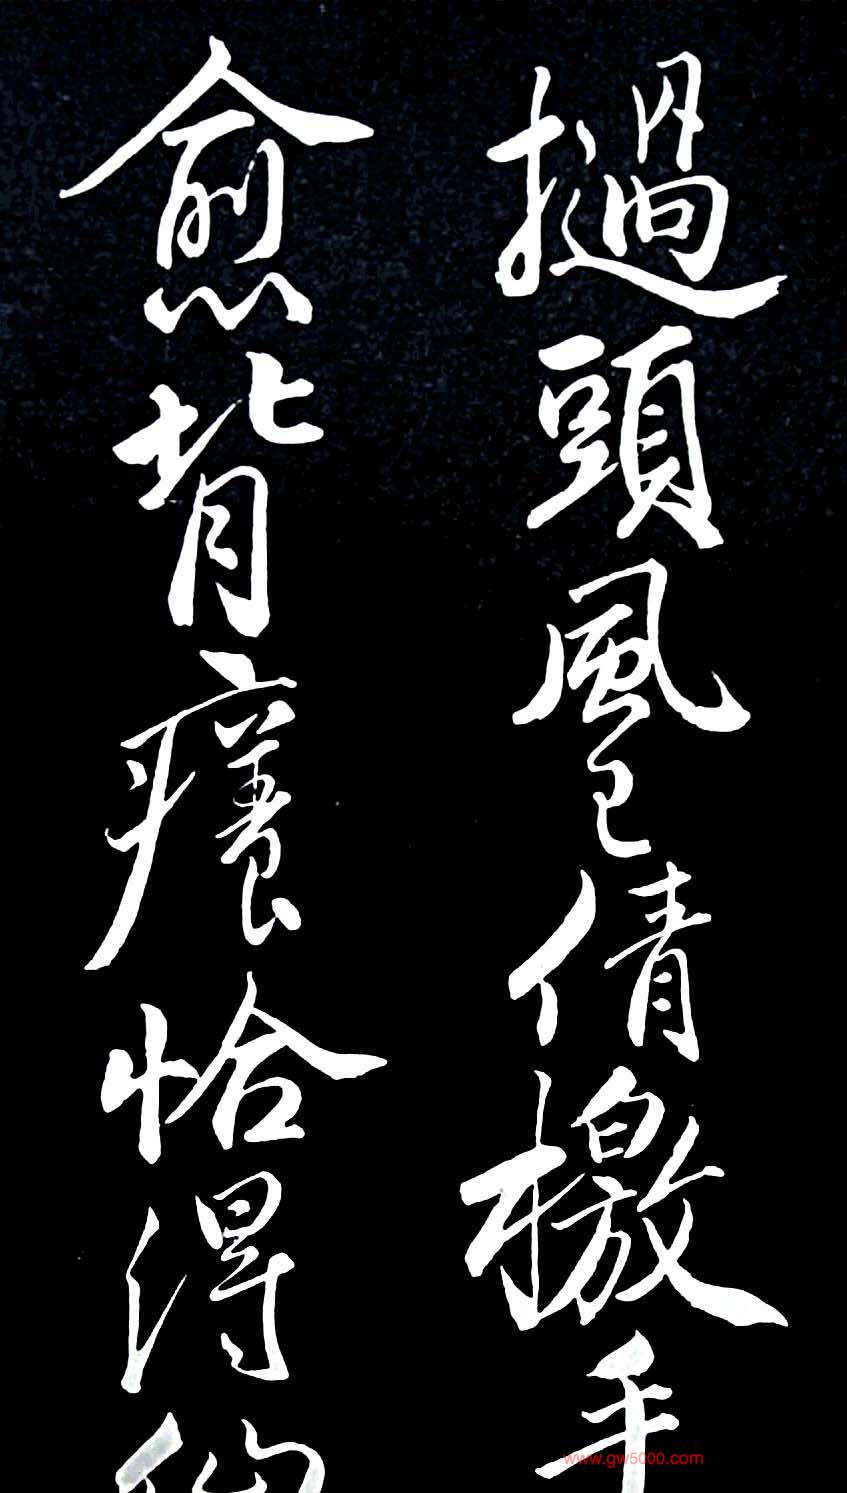 撾頭風已倩檄手
愈背癢恰得仙
www.gw5000.com